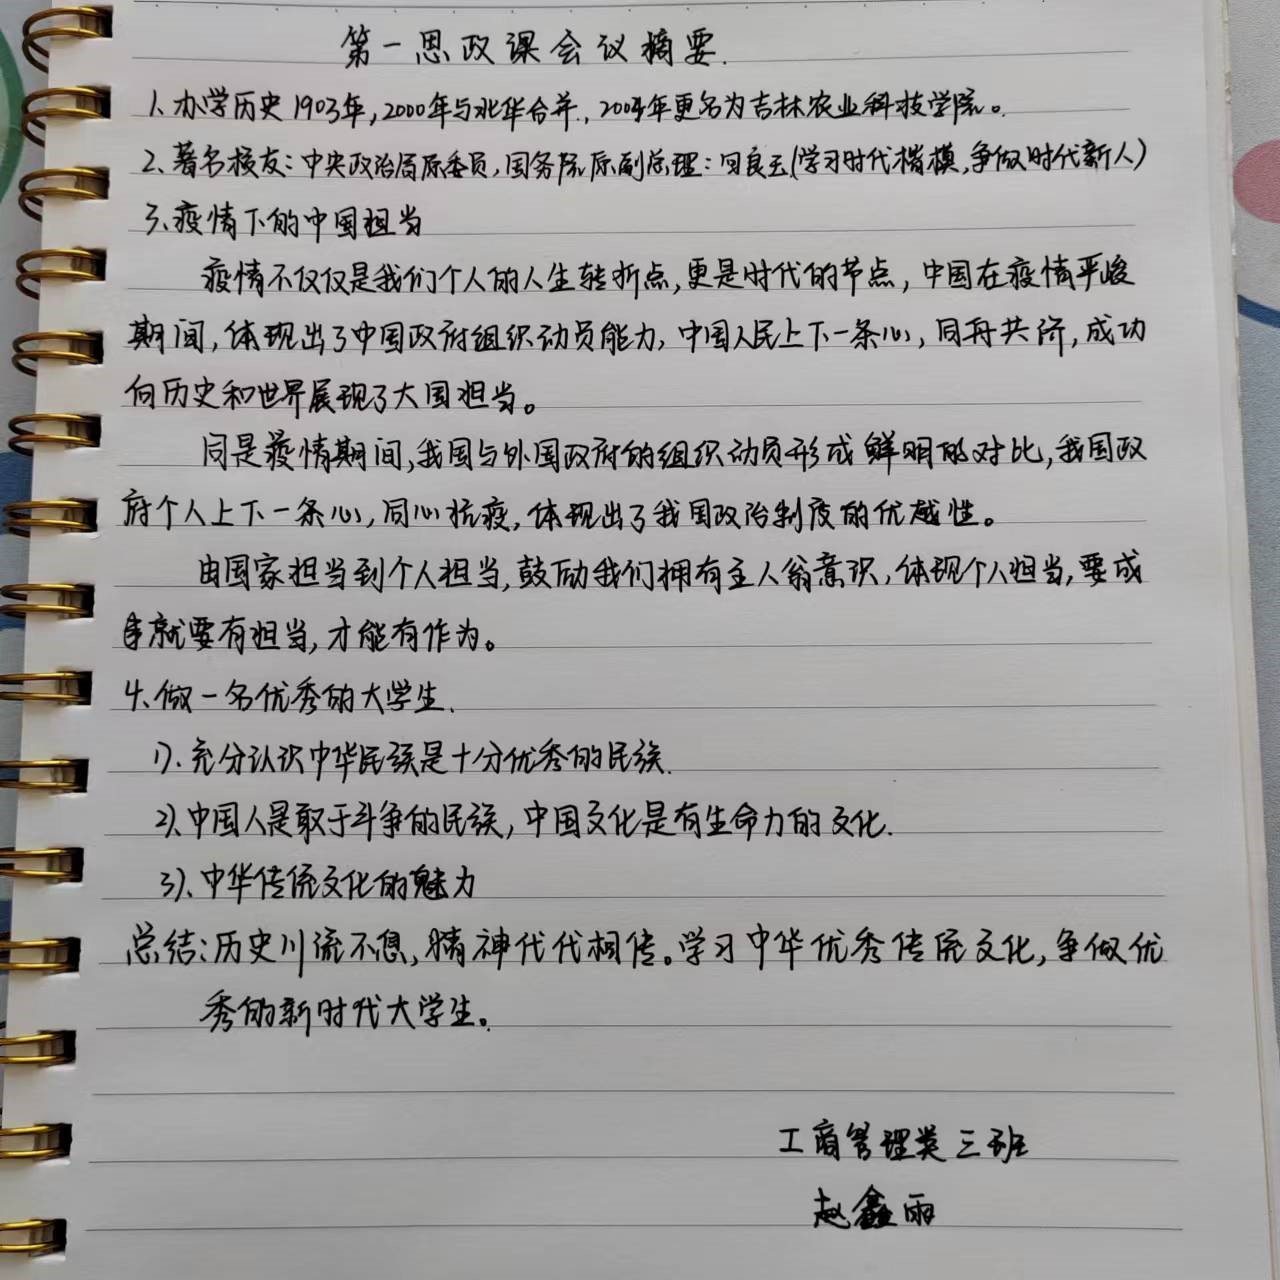 第一思政课会议摘要.
1、办学历史1903年,2000年与北华合并,2004年更名为吉林农业科技学院。
2、著名校友:中央政治局原委员,国务院原副总理:回良玉(学习时代楷模,争做时代新人)
3、疫情下的中国担当
疫情不仅仅是我们个人的人生转折点,更是时代的节点,中国在疫情严峻
期间,体现出了中国政府组织动员能力,中国人民上下一条心,同舟共济,成功
向历史和世界展现了大国担当。
同是疫情期间,我国与外国政府的组织动员形成鲜明的对比,我国政
府个人上下一条心,同心抗疫,体现出了我国政治制度的优越性。
由国家担当到个人担当,鼓励我们拥有主人翁意识,体现个人担当,要成
就要有担当,才能有作为。
4、做一名优秀的大学生.
1)、充分认识中华民族是十分优秀的民族.
2)、中国人是敢于斗争的民族,中国文化是有生命力的文化.
3)、中华传统文化的魅力
总结:历史川流不息,精神代代相传。学习中华优秀传统文化,争做优
秀的新时代大学生。
工商管理类三班
赵鑫雨